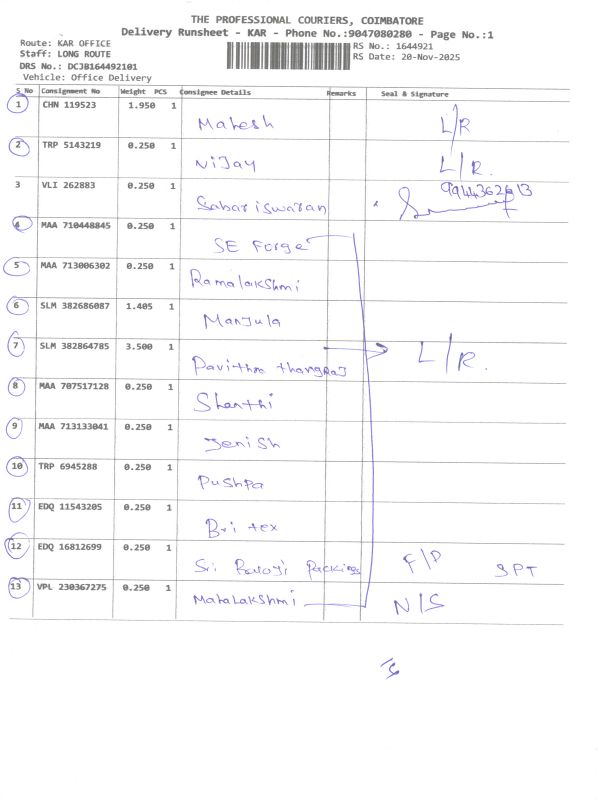 THE PROFESSIONAL COURIERS, COIMBATORE
Delivery Runsheet - KAR - Phone No.:9047080280 - Page No.:1
Route: KAR OFFICE
RS No.: 1644921
Staff: LONG ROUTE
RS Date: 20-Nov-2025
DRS No.: DCJB164492101
Vehicle: Office Delivery
S No Consignment No Weight PCS Consignee Details Remarks Seal & Signature
1 CHN 119523 1.950 1
Mahesh L/R
2 TRP 5143219 0.250 1
Nijay L/R.
3 VLI 262883 0.250 1
Sabariswaran
4 MAA 710448845 0.250 1
SE Forge
5 MAA 713006302 0.250 1
Ramalakshmi
6 SLM 382686087 1.405 1
Manjula
7 SLM 382864785 3.500 1
Pavithra thangraj L/R.
8 MAA 707517128 0.250 1
Shanthi
9 MAA 713133041 0.250 1
Jenish
10 TRP 6945288 0.250 1
Pushpa
11 EDQ 11543205 0.250 1
Britex
12 EDQ 16812699 0.250 1
Sri Balaji Packings F/P SPT
13 VPL 230367275 0.250 1
Mahalakshmi N/S